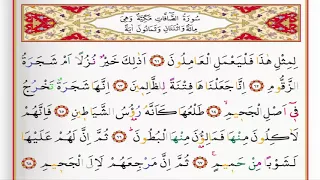 سُورَةُ الصَّٓافَّاتِ مَكِّيَّةٌ وَهِيَ
مِائَةٌ وَاثْنَتَانِ وَثَمَانُونَ اٰيَةً
لِمِثْلِ هٰذَا فَلْيَعْمَلِ الْعَامِلُونَ ﴿٦١﴾ اَذٰلِكَ خَيْرٌ نُزُلًا اَمْ شَجَرَةُ
الزَّقُّومِ ﴿٦٢﴾ اِنَّا جَعَلْنَاهَا فِتْنَةً لِلظَّالِمِينَ ﴿٦٣﴾ اِنَّهَا شَجَرَةٌ تَخْرُجُ
فِٓي اَصْلِ الْجَحِيمِ ﴿٦٤﴾ طَلْعُهَا كَاَنَّهُ رُؤُ۫سُ الشَّيَاطِينِ ﴿٦٥﴾ فَاِنَّهُمْ
لَاٰكِلُونَ مِنْهَا فَمَالِؤُ۫نَ مِنْهَا الْبُطُونَ ﴿٦٦﴾ ثُمَّ اِنَّ لَهُمْ عَلَيْهَا
لَشَوْبًا مِنْ حَمِيمٍ ﴿٦٧﴾ ثُمَّ اِنَّ مَرْجِعَهُمْ لَاِلَى الْجَحِيمِ ﴿٦٨﴾